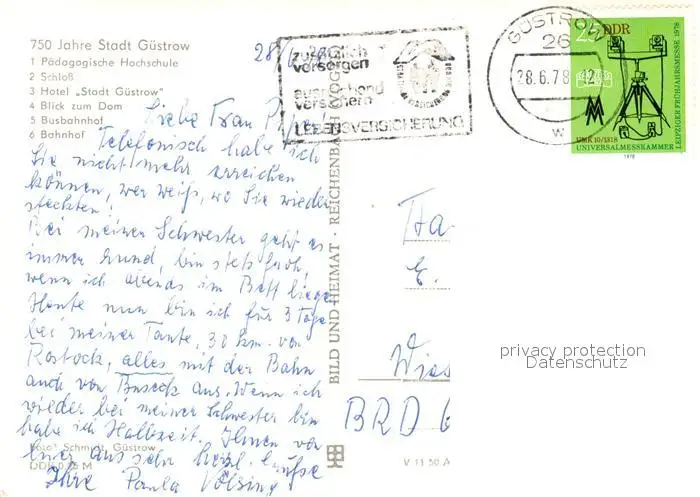 750 Jahre Stadt Güstrow
1 Pädagogische Hochschule
2 Schloß
3 Hotel „Stadt Güstrow"
4 Blick zum Dom
5 Busbahnhof
6 Bahnhof
28/6. 78
Liebe Frau
Telefonisch habe ich
Sie nicht mehr erreichen
können, wer weiß, wo Sie wieder
stecken!
Bei meiner Schwester geht es
immer rund, bin stets froh,
wenn ich abends im Bett liege
Heute nun bin ich für 3 Tage
bei meiner Tante, 30 km. von
Rostock, alles mit der Bahn
auch von Buseck aus. Wenn ich
wieder bei meiner Schwester bin
habe ich Halbzeit. Ihnen von
hier aus sehr herzl. Grüße
Ihre Paula Völsing
Foto: Schmidt, Güstrow
DDR 0,25 M
BILD UND HEIMAT · REICHENBACH (VOGTL)
V 11 50 A
zusätzlich
versorgen
ausreichend
versichern
LEBENSVERSICHERUNG
GÜSTROW
26
28.6.78
w
25 DDR
LEIPZIGER FRÜHJAHRSMESSE 1978
UMK 10/1318
UNIVERSALMESSKAMMER
1978
Wies
BRD 6
privacy protection
Datenschutz